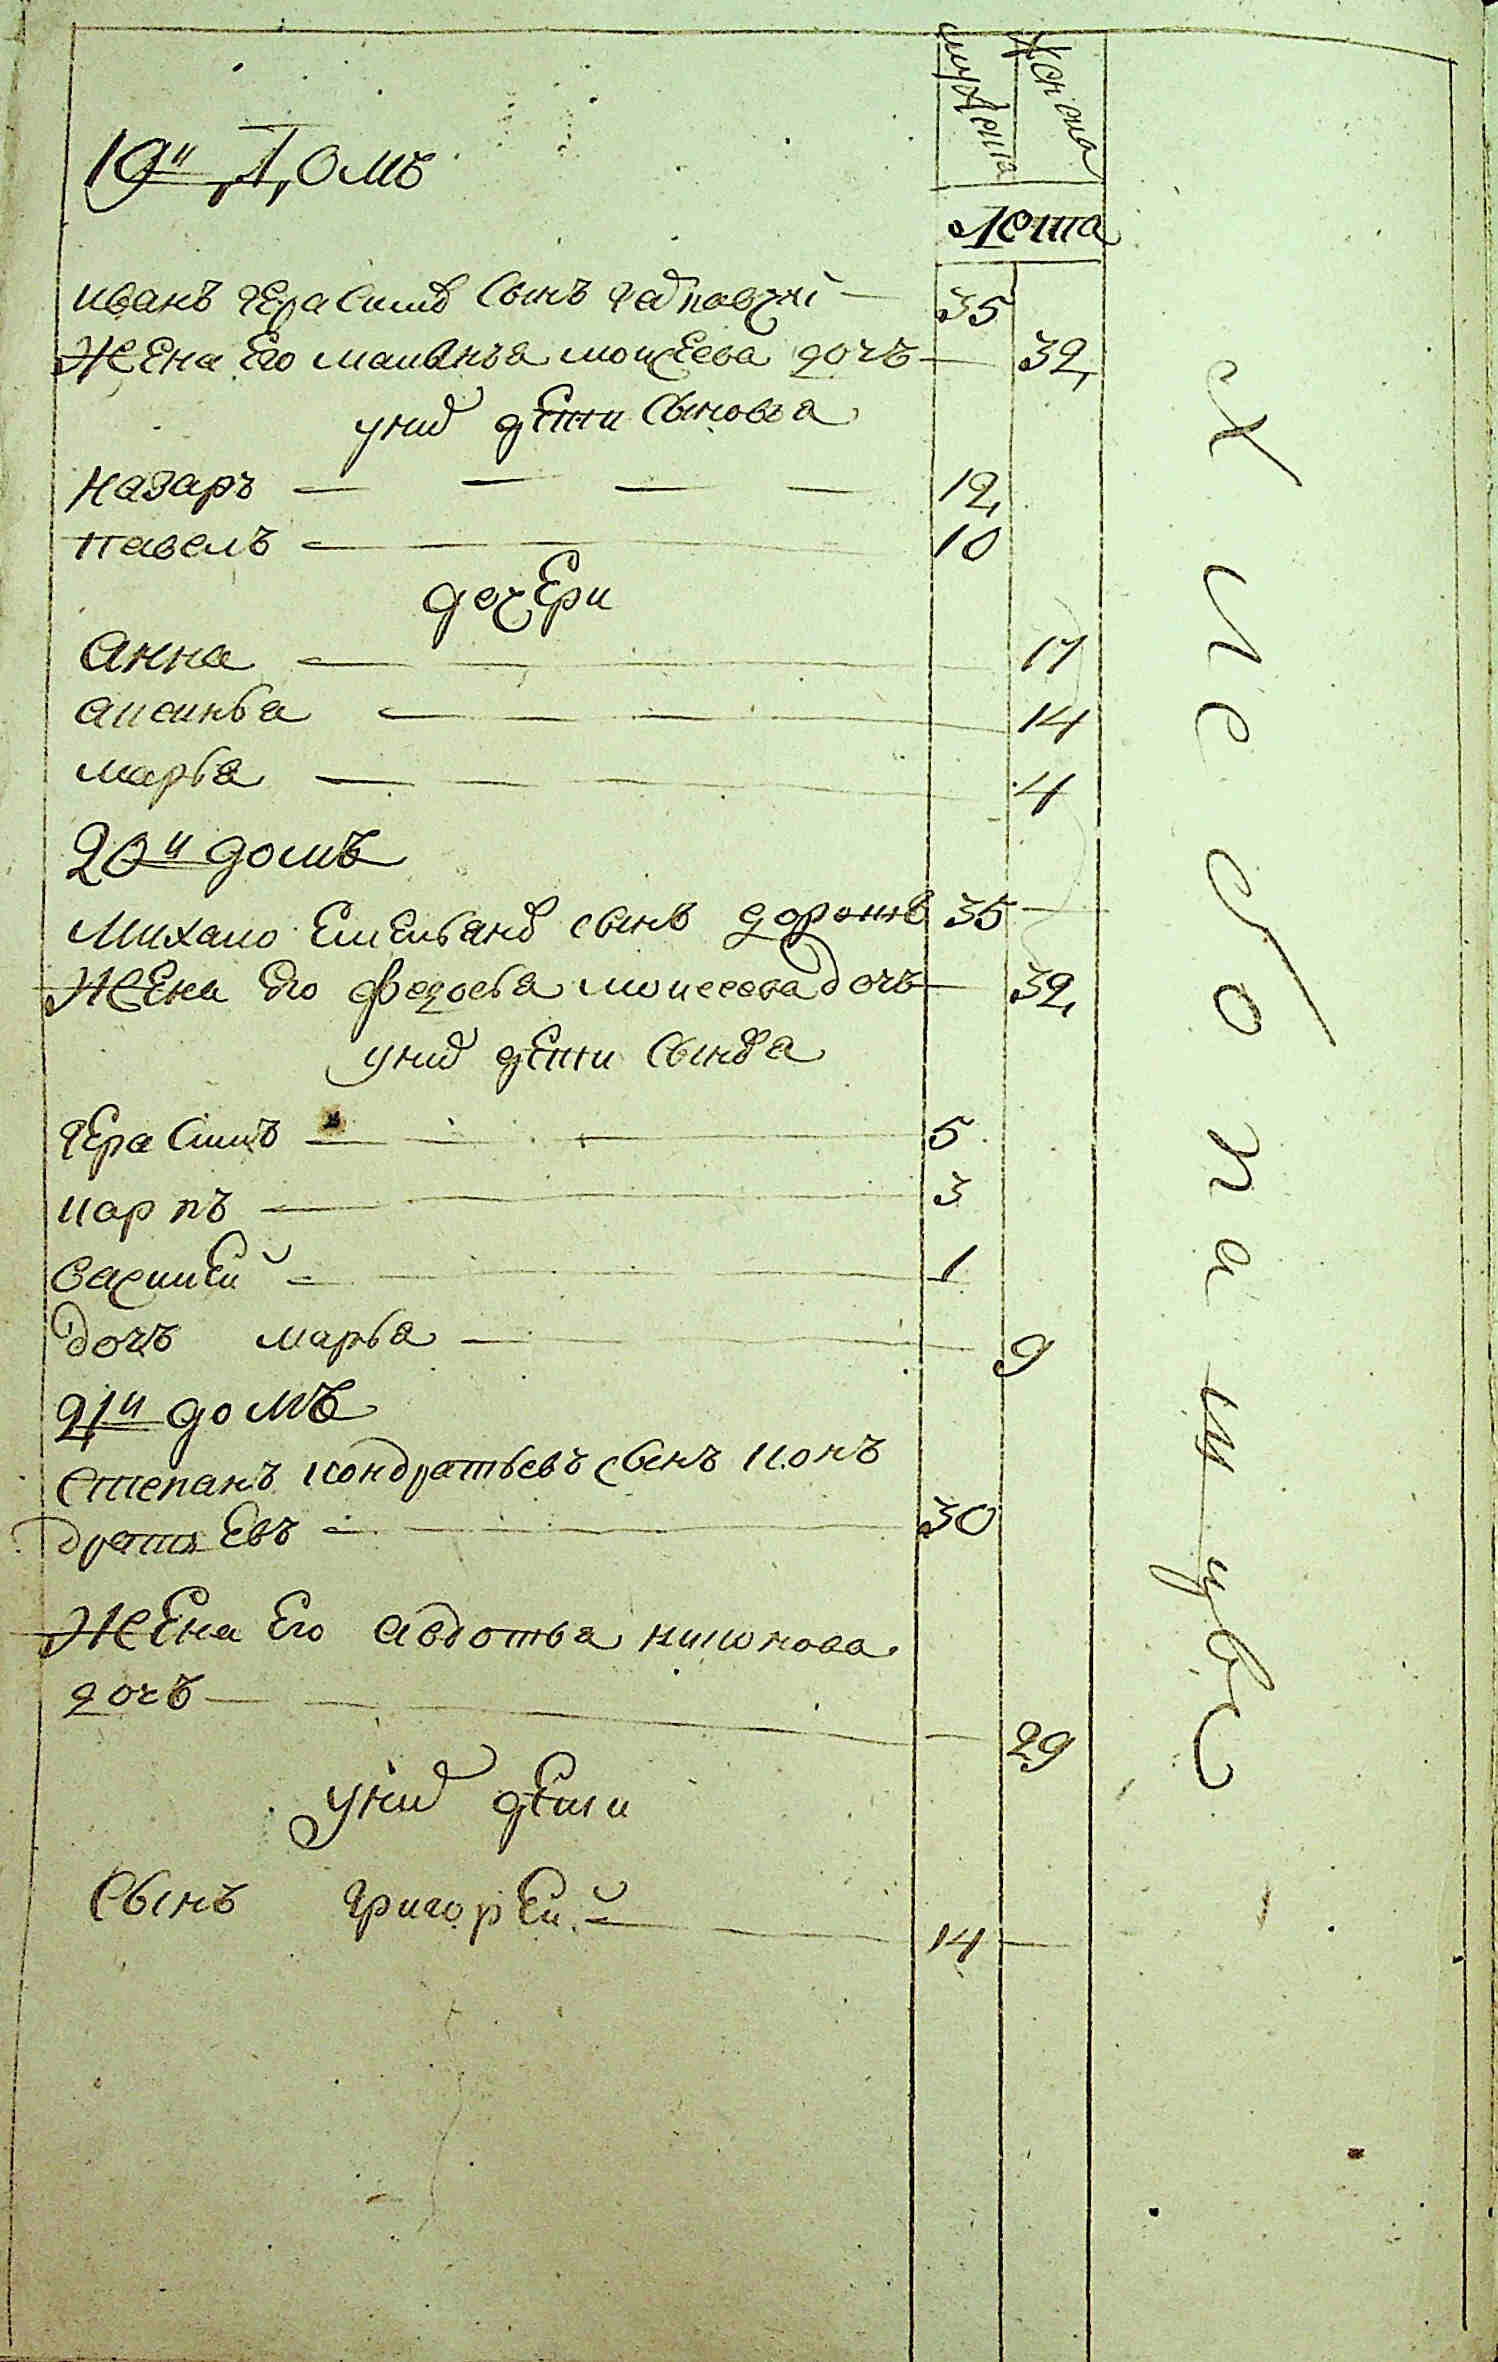 мужеска
женска
лѣта
19й домъ
иванъ герасимовъ сынъ
35
жена его маланья моисеева дочь
32
у нихъ дети сыновья
назаръ
12
павелъ
10
дочери
анна
17
аксинья
14
марья
4
20й домъ
михаило емельяновъ сынъ
35
жена его федосья моисеева дочь
32
у нихъ дети сыновья
герасимъ
5
карпъ
3
василей
1
дочь марья
9
21й домъ
степанъ кондратьевъ сынъ кон
30
дратьевъ
жена его авдотья никонова
дочь
29
у нихъ дети
сынъ григорей
14